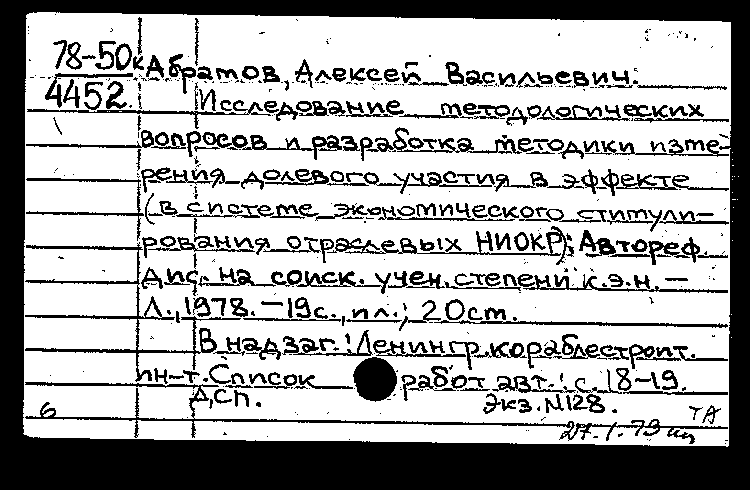 78-50к Абрамов, Алексей Васильевич.
4452. Исследование методологических
вопросов и разработка методики изме-
рения долевого участия в эффекте
(в системе экономического стимули-
рования отраслевых НИОКР): Автореф.
дис. на соиск. учен. степени к.э.н. —
Л., 1978. — 19с., ил.; 20см.
В надзаг.: Ленингр. кораблестроит.
ин-т. Список работ авт.: с. 18-19.
Дсп. Экз. №128.
6 ТА
27.1.79